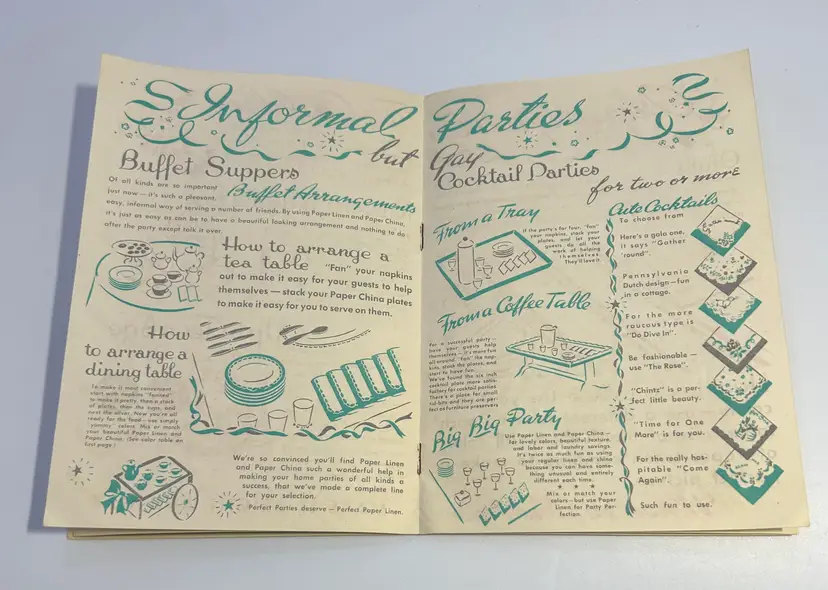 Informal
but
Buffet Suppers
Of all kinds are so important
just now — it's such a pleasant,
Buffet Arrangements
easy, informal way of serving a number of friends. By using Paper Linen and Paper China,
it's just as easy as can be to have a beautiful looking arrangement and nothing to do
after the party except talk it over.
How to arrange a
tea table
"Fan" your napkins
out to make it easy for your guests to help
themselves — stack your Paper China plates
to make it easy for you to serve on them.
How
to arrange a
dining table
To make it most convenient
start with napkins "fanned"
to make it pretty, then a stack
of plates, then the cups, and
next the silver. Now you're all
ready for the food — use simply
yummy colors. Mix or match
your beautiful Paper Linen and
Paper China. (See color table on
first page.)
We're so convinced you'll find Paper Linen
and Paper China such a wonderful help in
making your home parties of all kinds a
success, that we've made a complete line
for your selection.
Perfect Parties deserve — Perfect Paper Linen.
Parties
Gay
Cocktail Parties
for two or more
From a Tray
If the party's for four, "fan"
your napkins, stack your
plates, and let your
guests do all the
work of helping
themselves.
They'll love it.
From a Coffee Table
For a successful party —
have your guests help
themselves — it's more fun
all around. "Fan" the nap-
kins, stack the plates, and
start to have fun.
We've found the six inch
cocktail plate more satis-
factory for cocktail parties
There's a place for small
tid-bits and they are per-
fect as furniture preservers
Big Big Party
Use Paper Linen and Paper China —
for lovely colors, beautiful texture,
and labor and laundry savings.
It's twice as much fun as using
your regular linen and china
because you can have some-
thing unusual and entirely
different each time.
Mix or match your
colors — but use Paper
Linen for Party Per-
fection.
Cute Cocktails
To choose from
Here's a gala one,
it says "Gather
'round".
Pennsylvania
Dutch design — fun
in a cottage.
For the more
raucous type is
"Do Dive In".
Be fashionable —
use "The Rose".
"Chintz" is a per-
fect little beauty.
"Time for One
More" is for you.
For the really hos-
pitable "Come
Again".
Such fun to use.